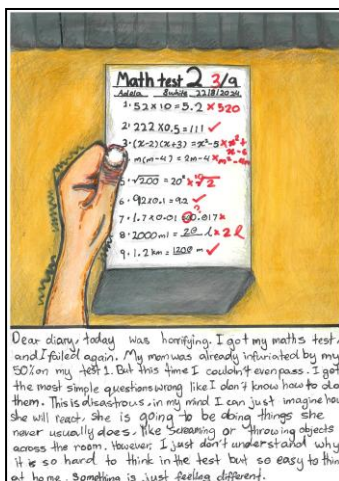 Math test 2 3/9
Adela 8white 22/8/2024
1. 52×10=5.2 ×520
2. 222×0.5=111 ✓
3. (x-2)(x+3)=x²-5 ×x²+
x-6
m(m-4)=2m-4 ×m²-4m
√200=20 ×√2
6. 92×0.1=9.2 ✓
7. 1.7×0.01=0.017×
8. 2000ml=20 l ×2 l
9. 1.2km=1200 m ✓
Dear diary, today was horrifying. I got my maths test,
and I failed again. My mom was already infuriated by my
50% on my test 1. But this time I couldn't even pass. I got
the most simple questions wrong like I don't know how to do
them. This is disastrous, in my mind I can just imagine how
she will react, she is going to be doing things she
never usually does, like screaming or throwing objects
across the room. However, I just don't understand why
it is so hard to think in the test but so easy to think
at home. Something is just feeling different.